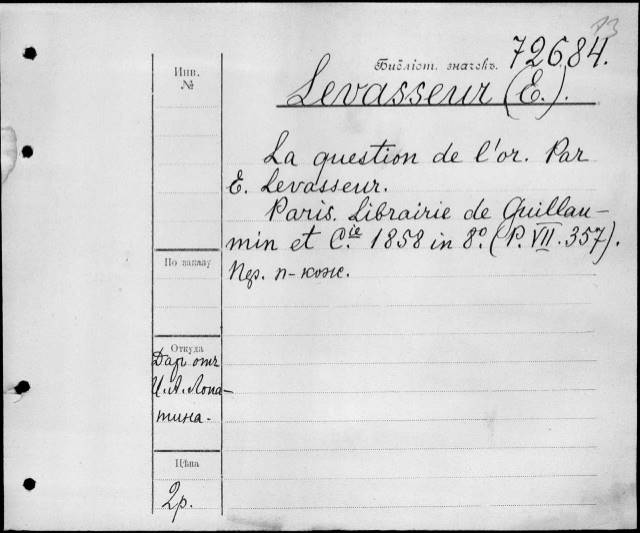 Библіот. значекъ. 72684.
Levasseur (E.).
Инв.
№
La question de l'or. Par
E. Levasseur.
Paris. Librairie de Guillau-
min et Cie 1858 in 8º. (P. VII. 357).
По заказу
Пер. п-кож.
Откуда
Даръ отъ
И. А. Лопа-
тина.
Цѣна
2р.